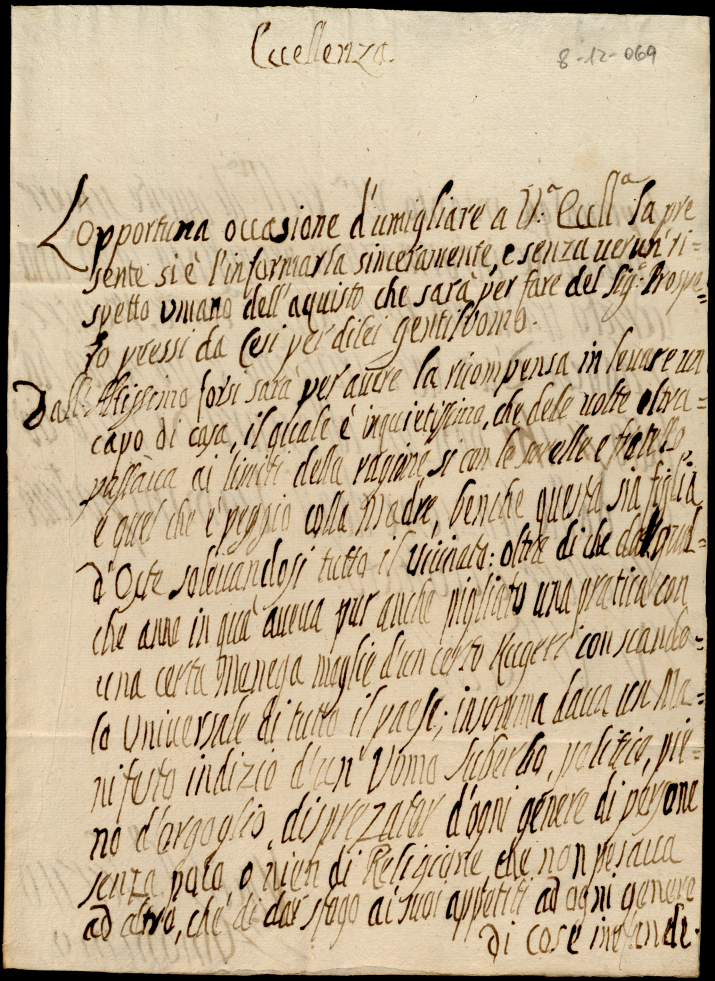 Eccellenza
8-12-069
L'opportuna occasione d'umigliare a V.ª Eccll.ª la pre
sente si è l'informarla sinceramente, e senza uerun' ri=
spetto umano dell'aquisto che sarà per fare del Sigʳ. Prospe=
ro pressi da Cesi per di lei Gentiluomo.
Dall'Altissimo forsi sarà per auere la ricompensa in leuare un
capo di casa, il quale è inquietissimo, che dele uolte oltra=
passaua ai limiti della ragione si con le sorelle e fratello,
e quel che è peggio colla Madre, benche questa sia figlia
d'Oste soleuandosi tutto il Vicinato: oltre di che da qual=
che anno in qua aueua pur anche pigliato una pratica con
una certa Menega moglie d'un certo Rugeri con scanda=
lo Uniuersale di tutto il paese; insomma daua un Ma=
nifesto indizio d'un' Uomo superbo, politico, pie=
no d'orgoglio, disprezator d'ogni genere di persone
senza poca o nien di Religione che non pensaua
ad altro, che di dar sfogo ai suoi appetiti ad ogni genere
di cose inefande.